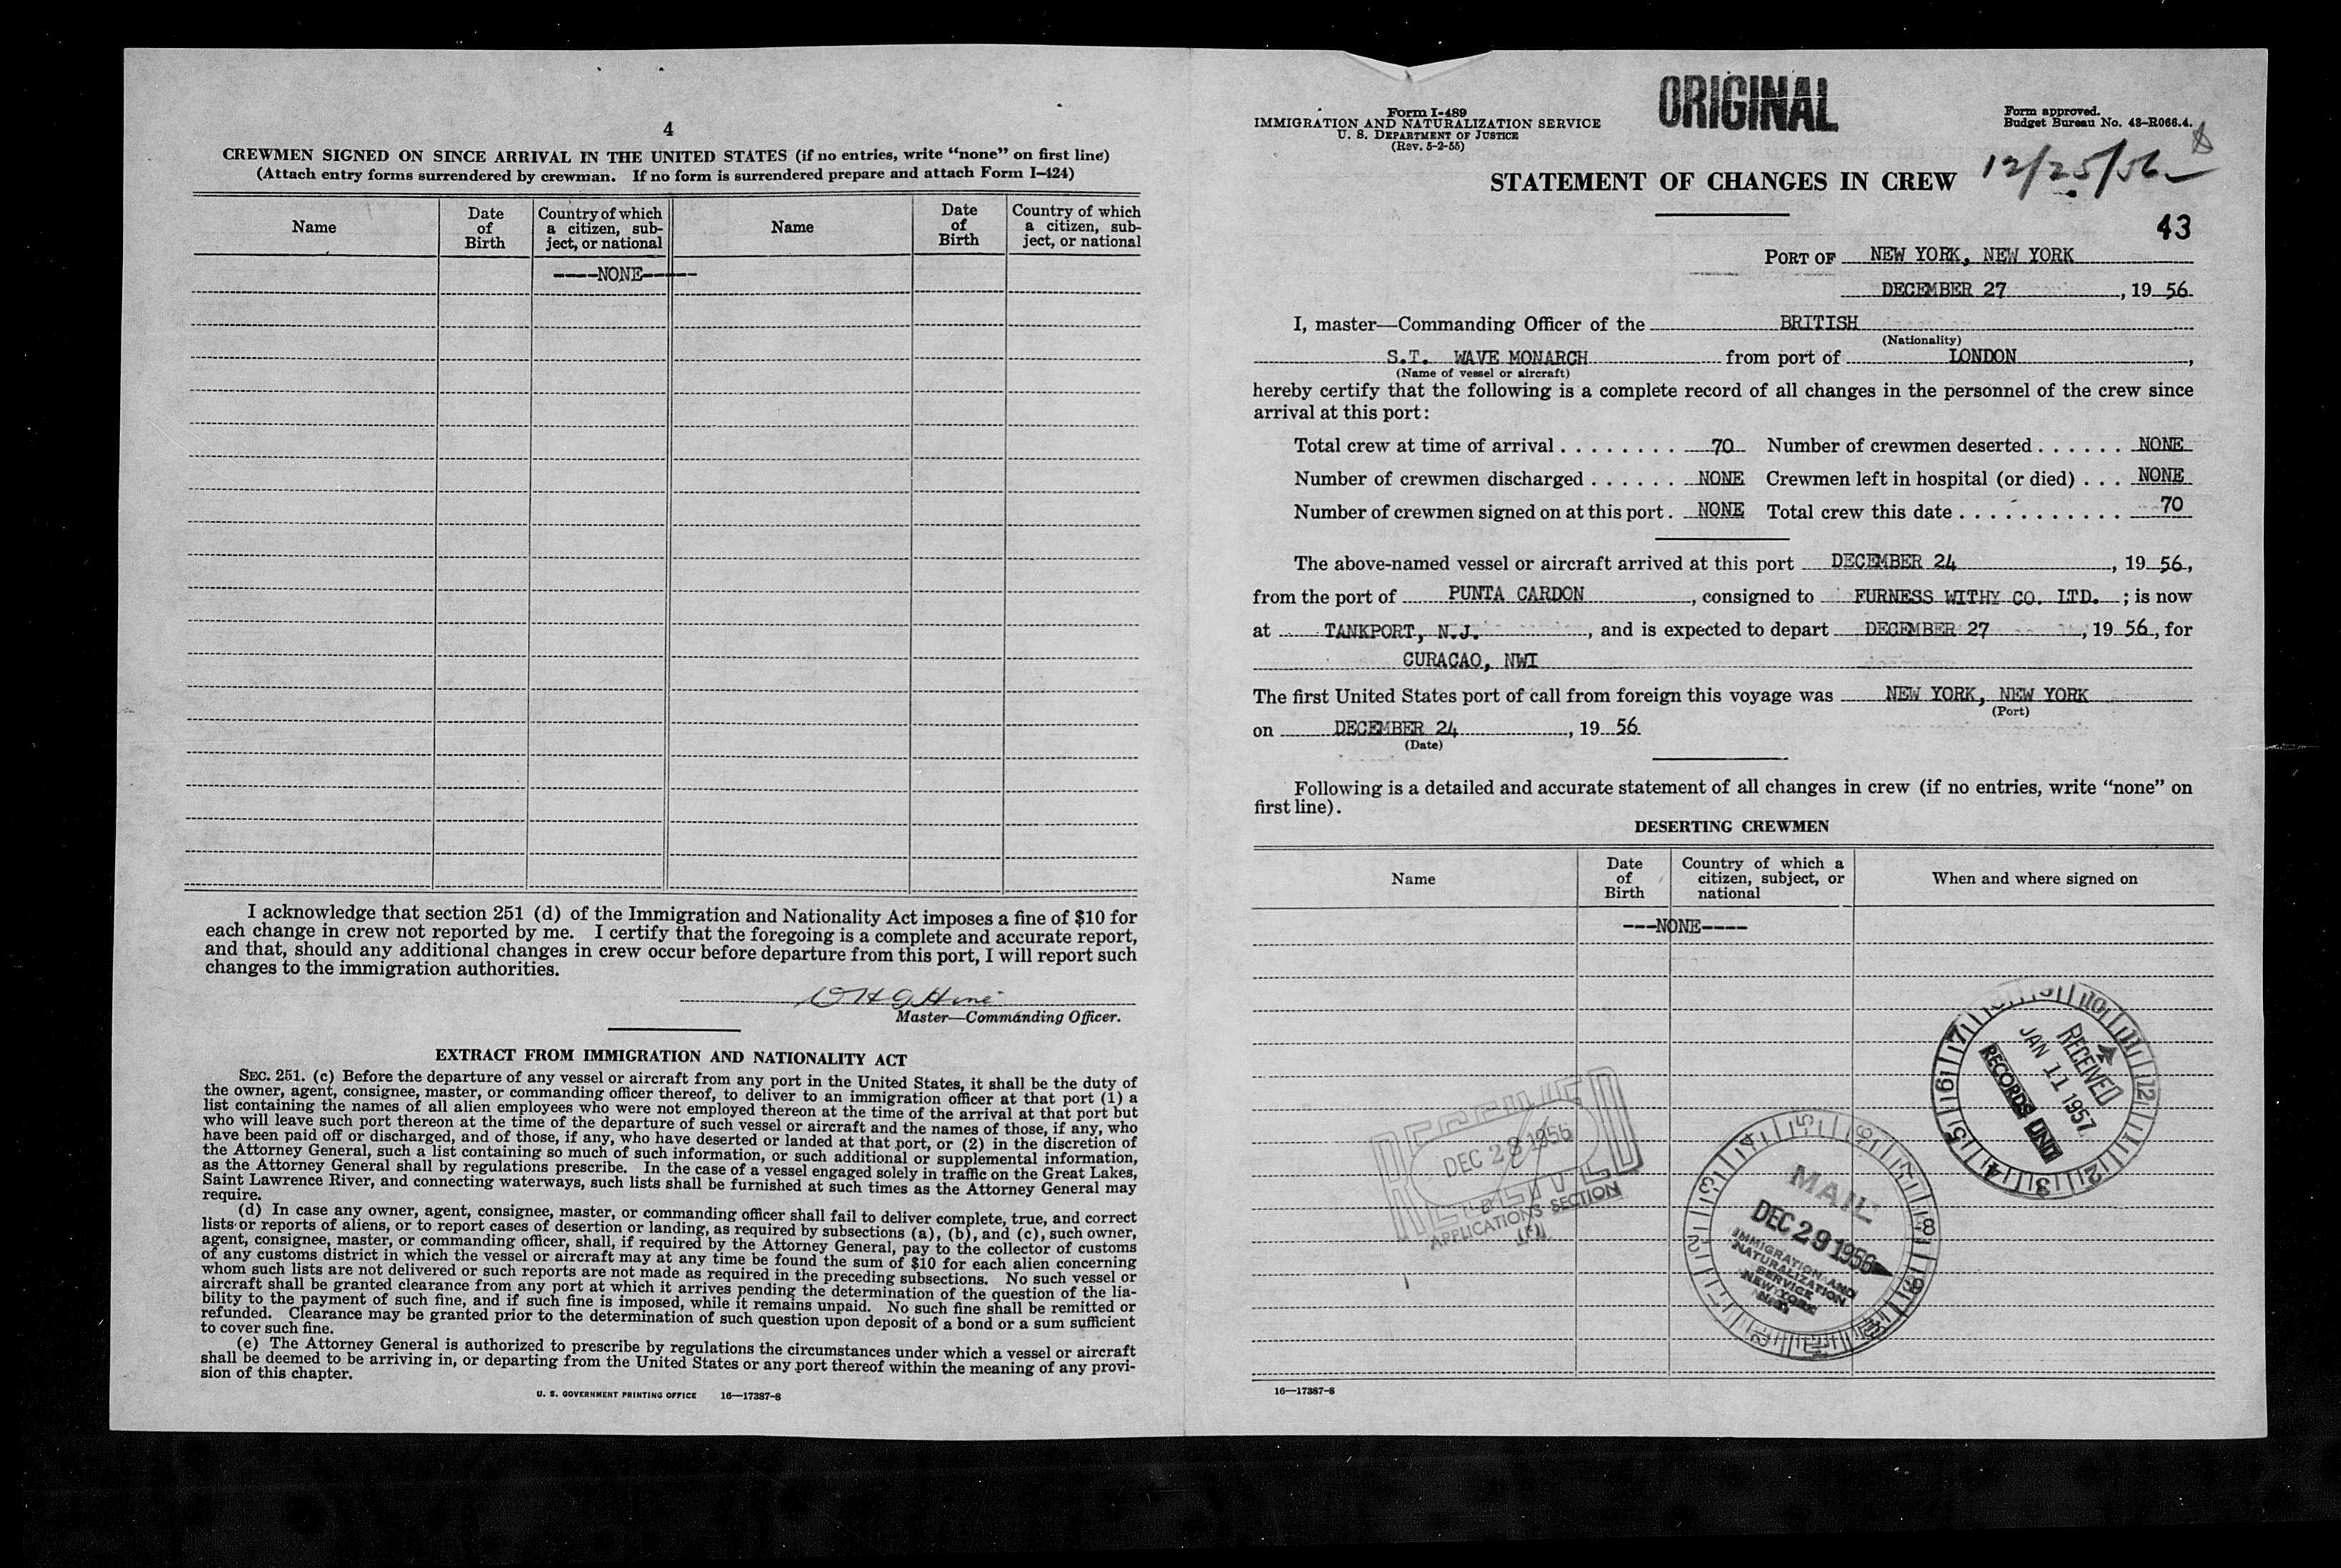 4
CREWMEN SIGNED ON SINCE ARRIVAL IN THE UNITED STATES (if no entries, write “none” on first line)
(Attach entry forms surrendered by crewman. If no form is surrendered prepare and attach Form I-424)
Name Date of Birth Country of which a citizen, sub-ject, or national Name Date of Birth Country of which a citizen, sub-ject, or national
----NONE-----
I acknowledge that section 251 (d) of the Immigration and Nationality Act imposes a fine of $10 for
each change in crew not reported by me. I certify that the foregoing is a complete and accurate report,
and that, should any additional changes in crew occur before departure from this port, I will report such
changes to the immigration authorities.
Master—Commanding Officer.
EXTRACT FROM IMMIGRATION AND NATIONALITY ACT
SEC. 251. (c) Before the departure of any vessel or aircraft from any port in the United States, it shall be the duty of
the owner, agent, consignee, master, or commanding officer thereof, to deliver to an immigration officer at that port (1) a
list containing the names of all alien employees who were not employed thereon at the time of the arrival at that port but
who will leave such port thereon at the time of the departure of such vessel or aircraft and the names of those, if any, who
have been paid off or discharged, and of those, if any, who have deserted or landed at that port, or (2) in the discretion of
the Attorney General, such a list containing so much of such information, or such additional or supplemental information,
as the Attorney General shall by regulations prescribe. In the case of a vessel engaged solely in traffic on the Great Lakes,
Saint Lawrence River, and connecting waterways, such lists shall be furnished at such times as the Attorney General may
require.
(d) In case any owner, agent, consignee, master, or commanding officer shall fail to deliver complete, true, and correct
lists or reports of aliens, or to report cases of desertion or landing, as required by subsections (a), (b), and (c), such owner,
agent, consignee, master, or commanding officer, shall, if required by the Attorney General, pay to the collector of customs
of any customs district in which the vessel or aircraft may at any time be found the sum of $10 for each alien concerning
whom such lists are not delivered or such reports are not made as required in the preceding subsections. No such vessel or
aircraft shall be granted clearance from any port at which it arrives pending the determination of the question of the lia-
bility to the payment of such fine, and if such fine is imposed, while it remains unpaid. No such fine shall be remitted or
refunded. Clearance may be granted prior to the determination of such question upon deposit of a bond or a sum sufficient
to cover such fine.
(e) The Attorney General is authorized to prescribe by regulations the circumstances under which a vessel or aircraft
shall be deemed to be arriving in, or departing from the United States or any port thereof within the meaning of any provi-
sion of this chapter.
U. S. GOVERNMENT PRINTING OFFICE 16—17387-8
Form I-489
IMMIGRATION AND NATURALIZATION SERVICE
U. S. DEPARTMENT OF JUSTICE
(Rev. 5-2-55)
ORIGINAL
Form approved.
Budget Bureau No. 43-R066.4.
12/25/56
STATEMENT OF CHANGES IN CREW
43
PORT OF NEW YORK, NEW YORK
DECEMBER 27, 19 56
I, master—Commanding Officer of the BRITISH
(Nationality)
S.T. WAVE MONARCH from port of LONDON,
(Name of vessel or aircraft)
hereby certify that the following is a complete record of all changes in the personnel of the crew since
arrival at this port:
Total crew at time of arrival . . . . . . . . 70 Number of crewmen deserted . . . . . . NONE
Number of crewmen discharged . . . . . . NONE Crewmen left in hospital (or died) . . . NONE
Number of crewmen signed on at this port . NONE Total crew this date . . . . . . . . . . . 70
The above-named vessel or aircraft arrived at this port DECEMBER 24, 19 56,
from the port of PUNTA CARDON, consigned to FURNESS WITHY CO. LTD. ; is now
at TANKPORT, N.J., and is expected to depart DECEMBER 27, 19 56, for
CURACAO, NWI
The first United States port of call from foreign this voyage was NEW YORK, NEW YORK
(Port)
on DECEMBER 24, 19 56
(Date)
Following is a detailed and accurate statement of all changes in crew (if no entries, write “none” on
first line).
DESERTING CREWMEN
Name Date of Birth Country of which a citizen, subject, or national When and where signed on
---NONE----
RECEIVED
JAN 11 1957
RECORDS UNIT
DEC 28 1956
APPLICATIONS SECTION
MAIL
DEC 29 1956
IMMIGRATION AND
NATURALIZATION
SERVICE
NEW YORK
16—17387-8